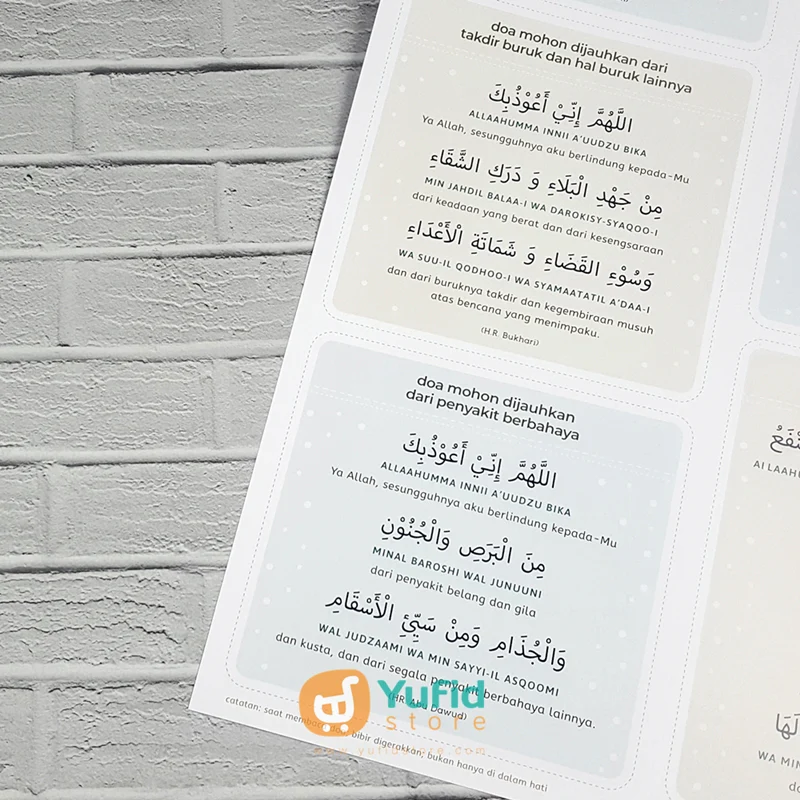 doa mohon dijauhkan dari
takdir buruk dan hal buruk lainnya
اللَّهُمَّ إِنِّيْ أَعُوْذُبِكَ
ALLAAHUMMA INNII A'UUDZU BIKA
Ya Allah, sesungguhnya aku berlindung kepada-Mu
مِنْ جَهْدِ الْبَلَاءِ وَ دَرَكِ الشَّقَاءِ
MIN JAHDIL BALAA-I WA DAROKISY-SYAQOO-I
dari keadaan yang berat dan dari kesengsaraan
وَسُوْءِ الْقَضَاءِ وَ شَمَاتَةِ الْأَعْدَاءِ
WA SUU-IL QODHOO-I WA SYAMAATATIL A'DAA-I
dan dari buruknya takdir dan kegembiraan musuh
atas bencana yang menimpaku.
(H.R. Bukhari)
doa mohon dijauhkan
dari penyakit berbahaya
اللَّهُمَّ إِنِّيْ أَعُوْذُبِكَ
ALLAAHUMMA INNII A'UUDZU BIKA
Ya Allah, sesungguhnya aku berlindung kepada-Mu
مِنَ الْبَرَصِ وَالْجُنُوْنِ
MINAL BAROSHI WAL JUNUUNI
dari penyakit belang dan gila
وَالْجُذَامِ وَمِنْ سَيِّئِ الْأَسْقَامِ
WAL JUDZAAMI WA MIN SAYYI-IL ASQOOMI
dan kusta, dan dari segala penyakit berbahaya lainnya.
(HR. Abu Dawud)
catatan: saat bibir digerakkan, bukan hanya di dalam hati
Yufid
store
www.yufidstore.com
WA MIN